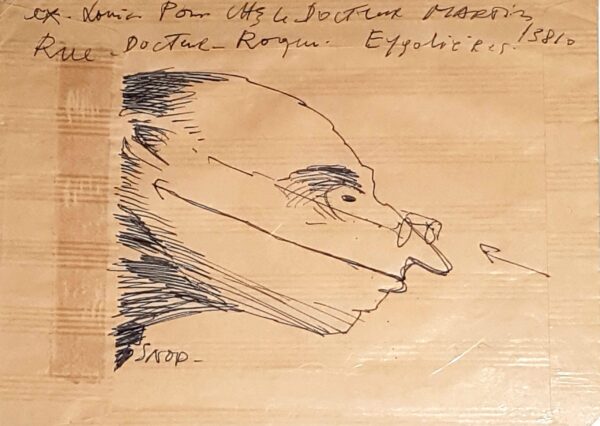 ex. Louis Pons chez le Docteur MARTIN
Rue Docteur Roque. Eygalières. 13810
SNOP_